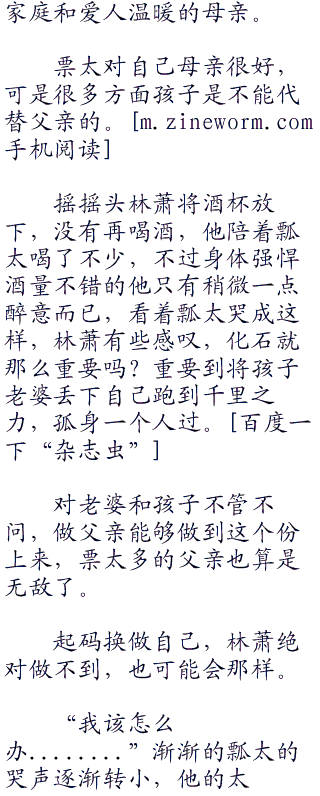 家庭和爱人温暖的母亲。
票太对自己母亲很好，
可是很多方面孩子是不能代
替父亲的。[m.zineworm.com
手机阅读]
摇摇头林萧将酒杯放
下，没有再喝酒，他陪着瓢
太喝了不少，不过身体强悍
酒量不错的他只有稍微一点
醉意而已，看着瓢太哭成这
样，林萧有些感叹，化石就
那么重要吗？重要到将孩子
老婆丢下自己跑到千里之
力，孤身一个人过。[百度一
下“杂志虫”]
对老婆和孩子不管不
问，做父亲能够做到这个份
上来，票太多的父亲也算是
无敌了。
起码换做自己，林萧绝
对做不到，也可能会那样。
“我该怎么
办........”渐渐的瓢太的
哭声逐渐转小，他的太